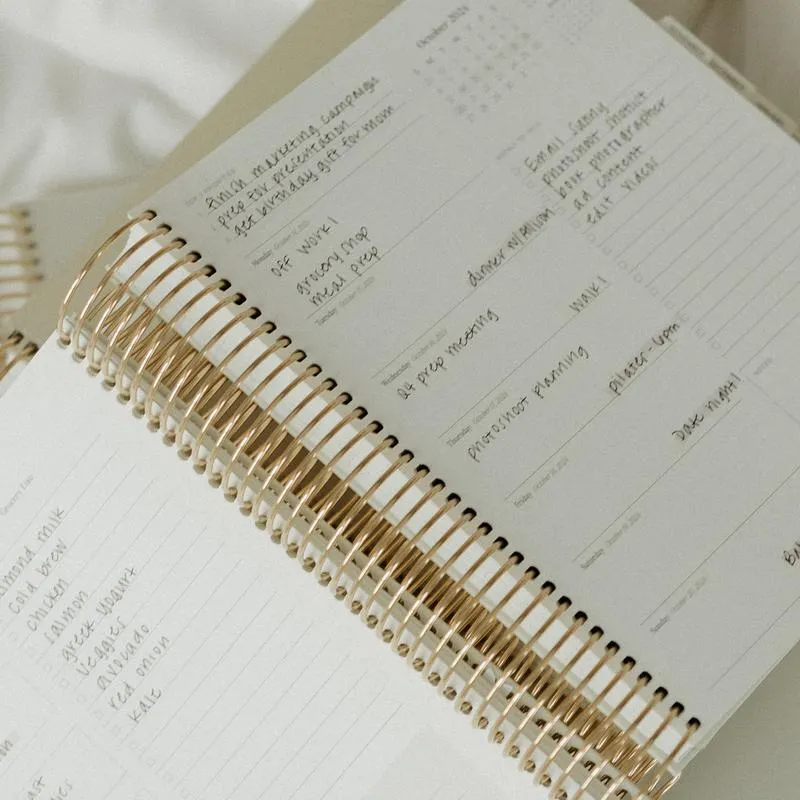 Grocery List
almond milk
cold brew
chicken
salmon
greek yogurt
veggies
avocado
red onion
kale
October 2024
finish marketing campaign
prep for presentation
get birthday gift for mom
Monday October 14, 2024
off work!
grocery shop
meal prep
Tuesday October 15, 2024
dinner w/
Wednesday October 16, 2024
Q4 prep meeting
walk!
Thursday October 17, 2024
photoshoot planning
pilates - 6pm
Friday October 18, 2024
Date night!
Saturday October 19, 2024
Sunday October 20, 2024
Email
photoshoot shotlist
book photographer
ad content
edit videos
NOTES